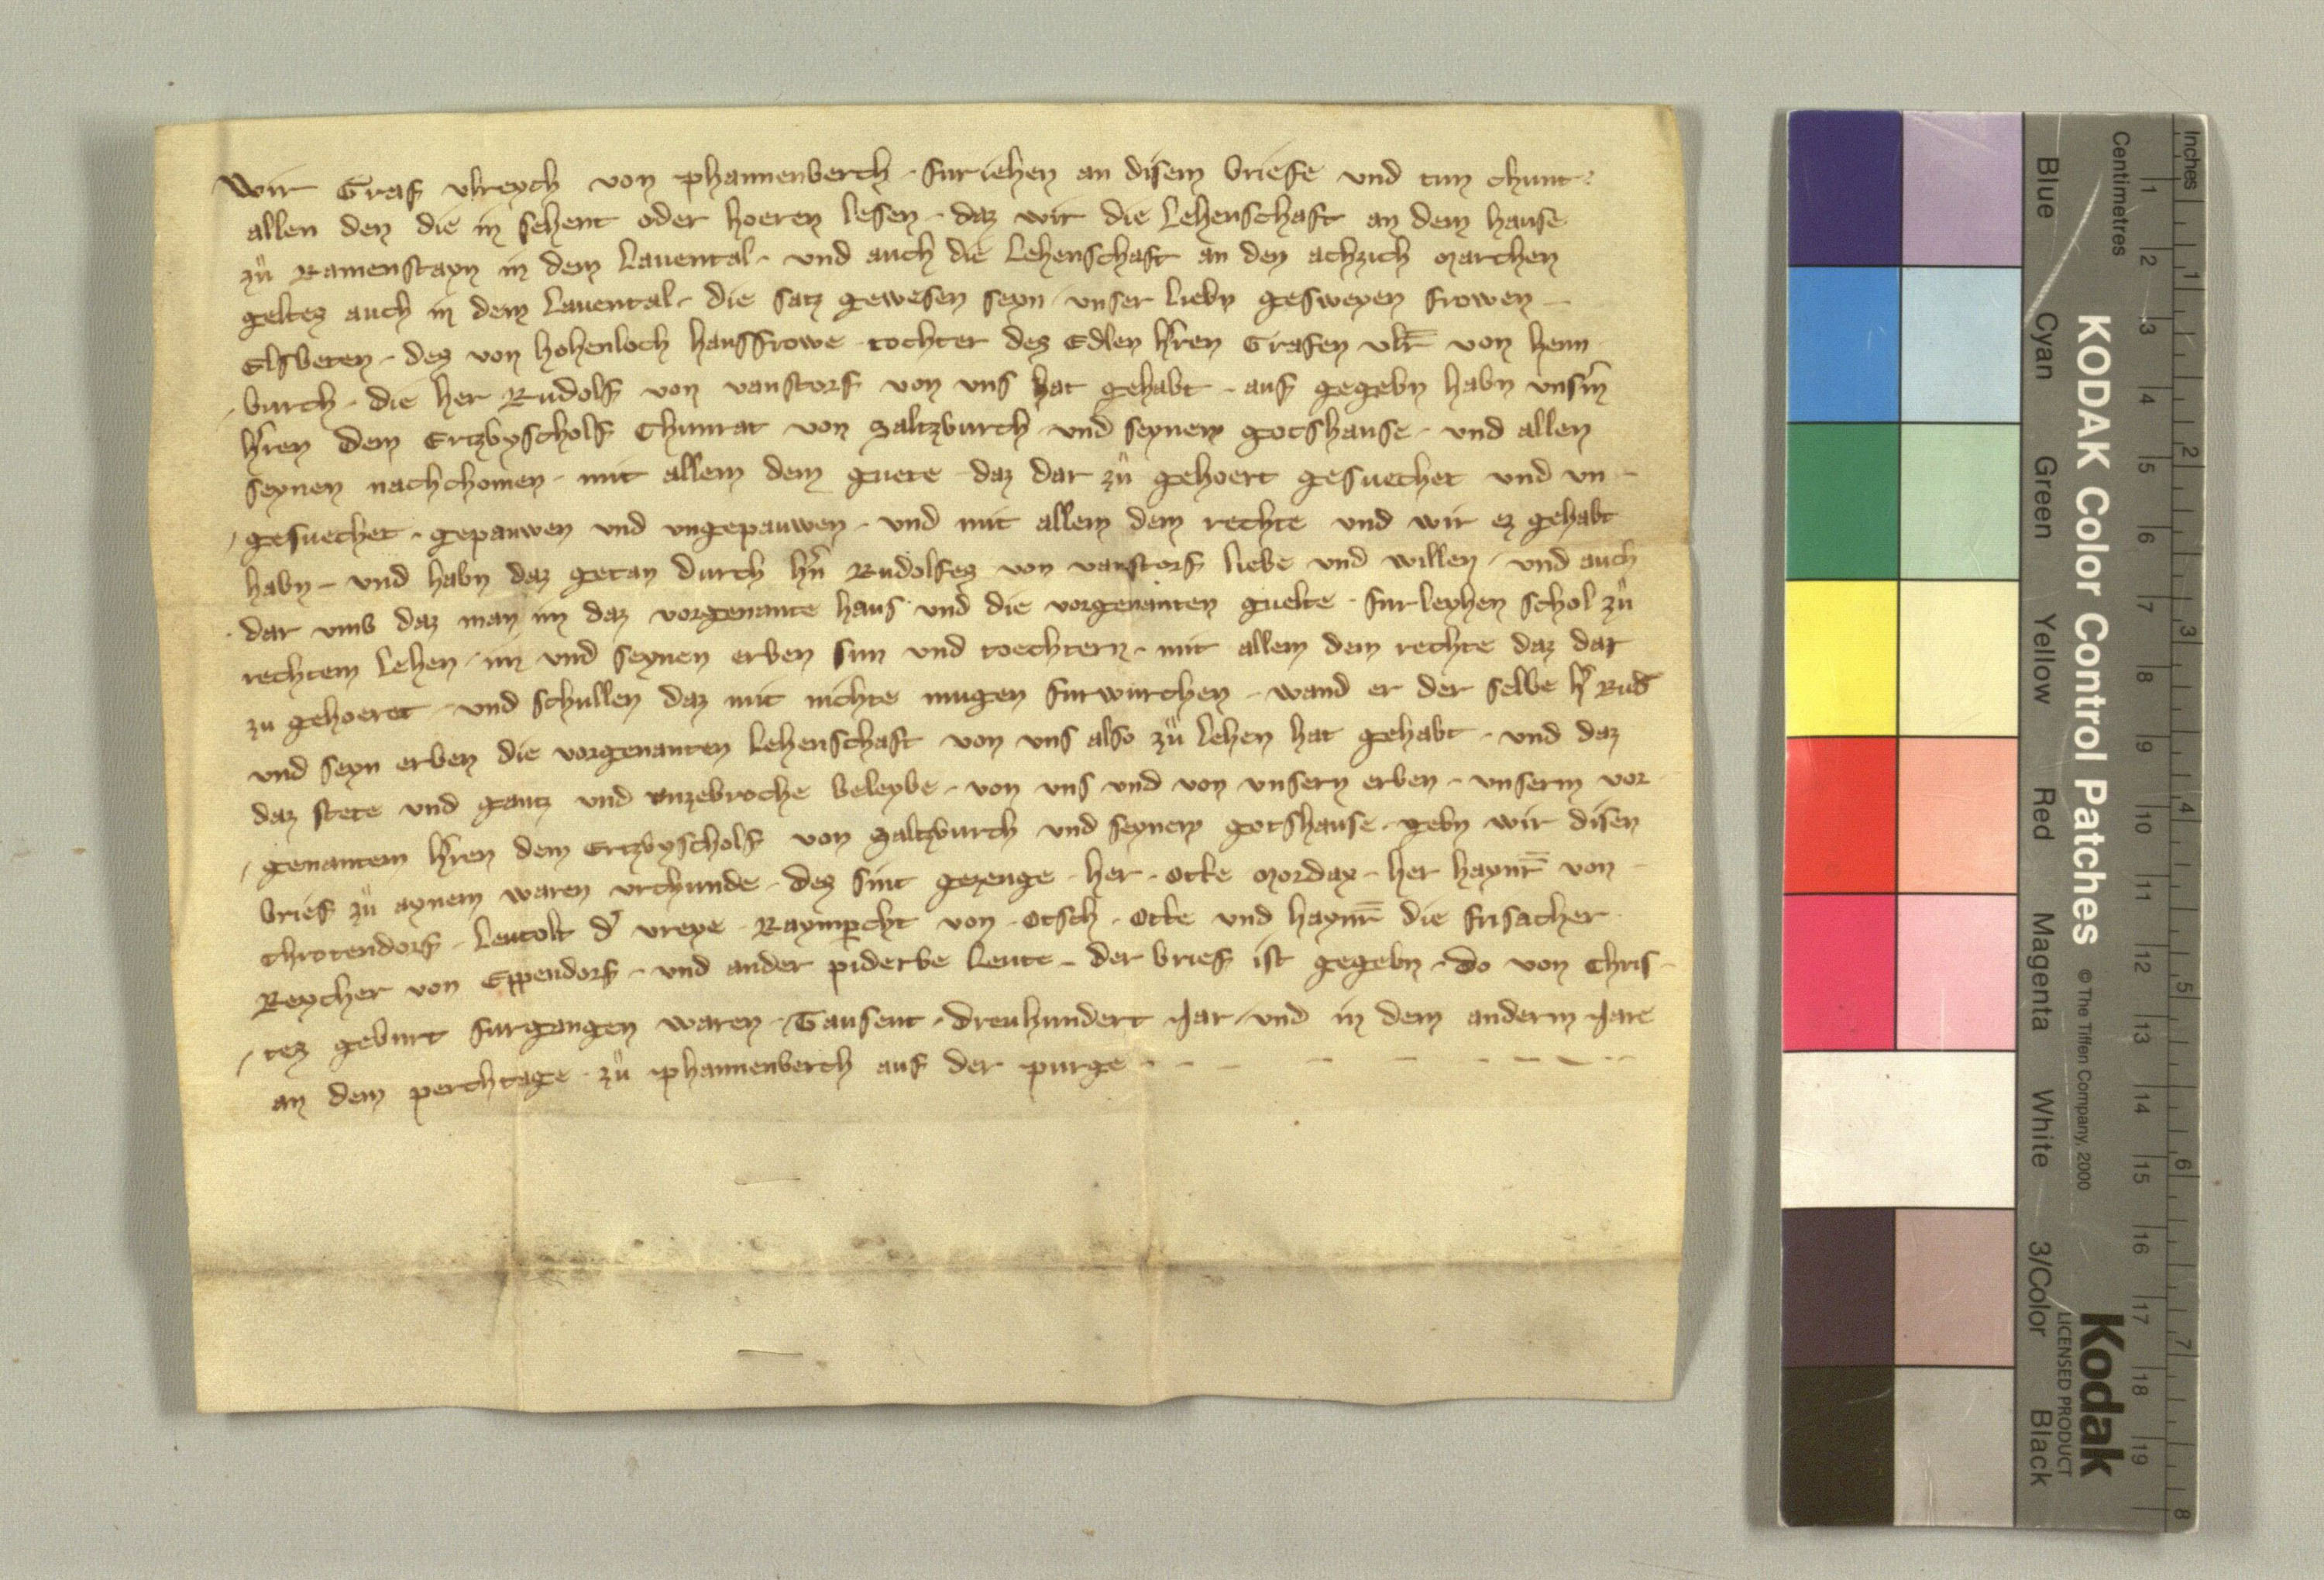 Wir Graf vlreych von phannenberch · furiehen an disem briefe und tun chunt ·
allen den die in sehent oder hoeren lesen · daz wir die Lehenschaft an dem hause
zů Ramenstayn in dem Lauental · und auch die Lehenschaft an den achzich marchen
geltes auch in dem Lauental · die satz gewesen seyn · vnser liebn gesweyen frowen –
Elsbeten · des von hohenloch hausfrowe · tochter des Edlen h̄ren Grafen vlr̄ von heun
burch · die her Rudolf von vanstorf von vns hat gehabt · auf gegebn habn vnserm̄
h̄ren dem Ertzbyscholf Chunrat von Saltzburch und seynem gotshause · und allen
seynen nachchomen · mit allem dem guete daz dar zů gehoert gesuechet und vn –
gesuechet · gepauwen und vngepauwen · und mit allem dem rechte und wir ez gehabt
habn – und habn daz getan durch h̄n Rudolfes von vanstorf liebe und willen · und auch
dar vmb daz man im daz vorgenante haus und die vorgenanten guelte · furleyhen schol zů
rechtem Lehen · im und seynen erben sun und toechtern · mit allem dem rechte daz dar
zu gehoeret · und schullen daz mit nichte mugen furwurchen · wand er der selbe h̄ Rud̄
und seyn erben die vorgenanten Lehenschaft von vns also zů Lehen hat gehabt · und daz
daz stete und gantz und vnzebroche beleybe · von vns und von vnsern erben · vnserm vor
genantem h̄ren dem Ertzbyscholf von Saltzburch und seynem gotshause · gebn wir disen
brief zů aynem waren vrchunde · des sint gezeuge · her · Otte Mordax · her haynr̄ von
Chrotendorf · Leutolt d̄ vreye · Raympr̄cht von · Otsch · Otte und haynr̄ die frisacher
Reycher von Eppendorf · und ander piderbe Leute – der brief ist gegebn · do von Chris –
tes geburt furgangen waren · Tausent · dreuhundert Jar · und in dem anderm Jare
an dem perchtage · zů phannenberch auf der purge · – –
Inches
Centimetres
1 2 3 4 5 6 7 8
1 2 3 4 5 6 7 8 9 10 11 12 13 14 15 16 17 18 19
KODAK Color Control Patches © The Tiffen Company, 2000
Kodak
LICENSED PRODUCT
Blue Cyan Green Yellow Red Magenta White 3/Color Black